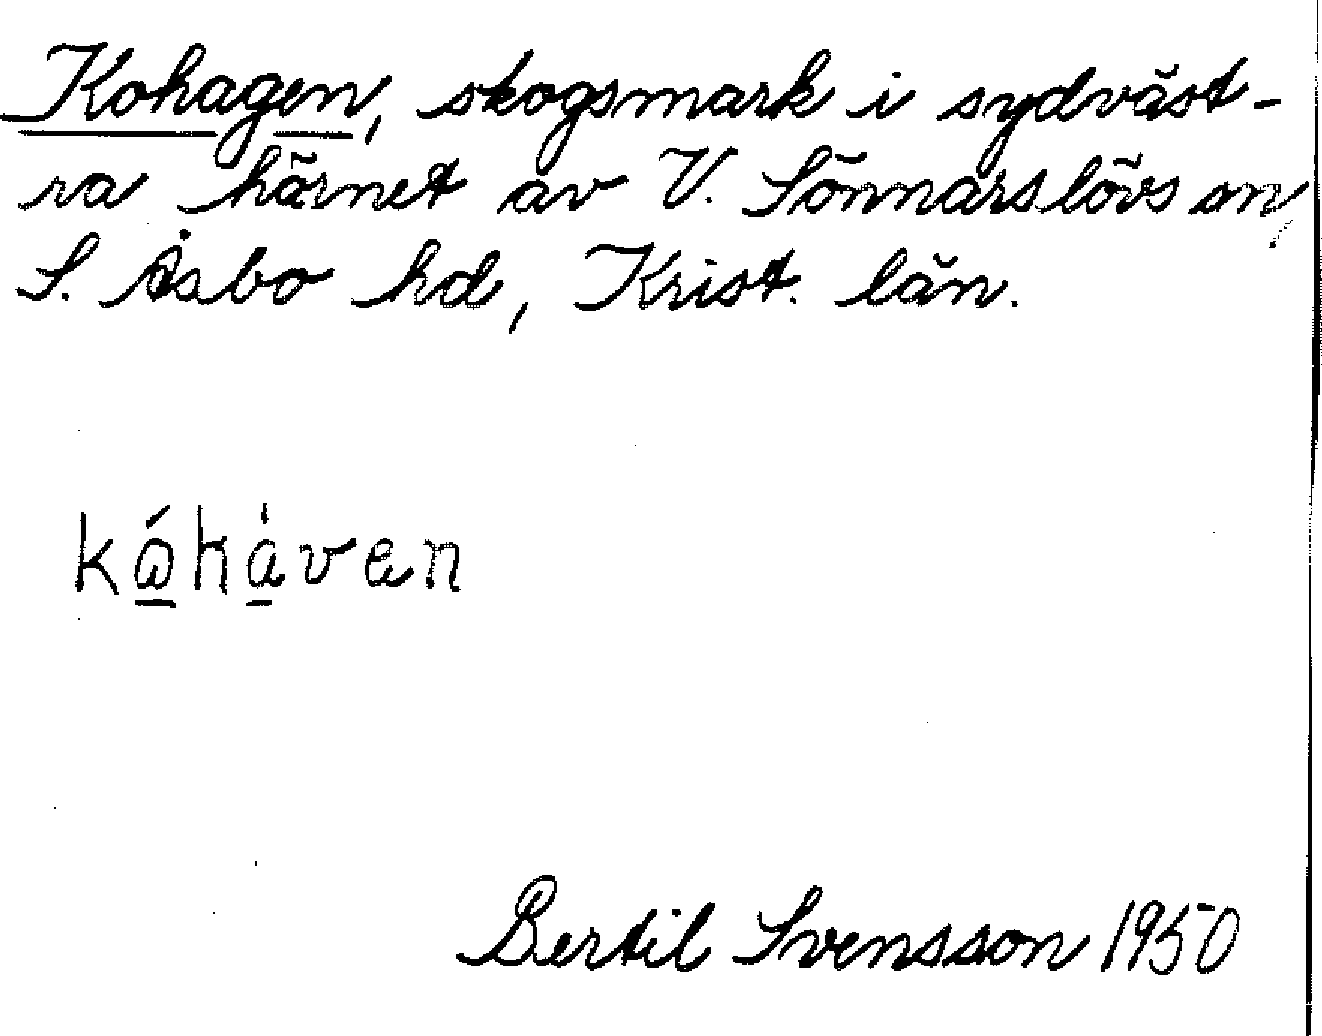 Kohagen, skogsmark i sydväst-
ra hörnet av V. Sönnarslövs sn,
S. Åsbo hd, Krist. län.
Bertil Svensson 1950